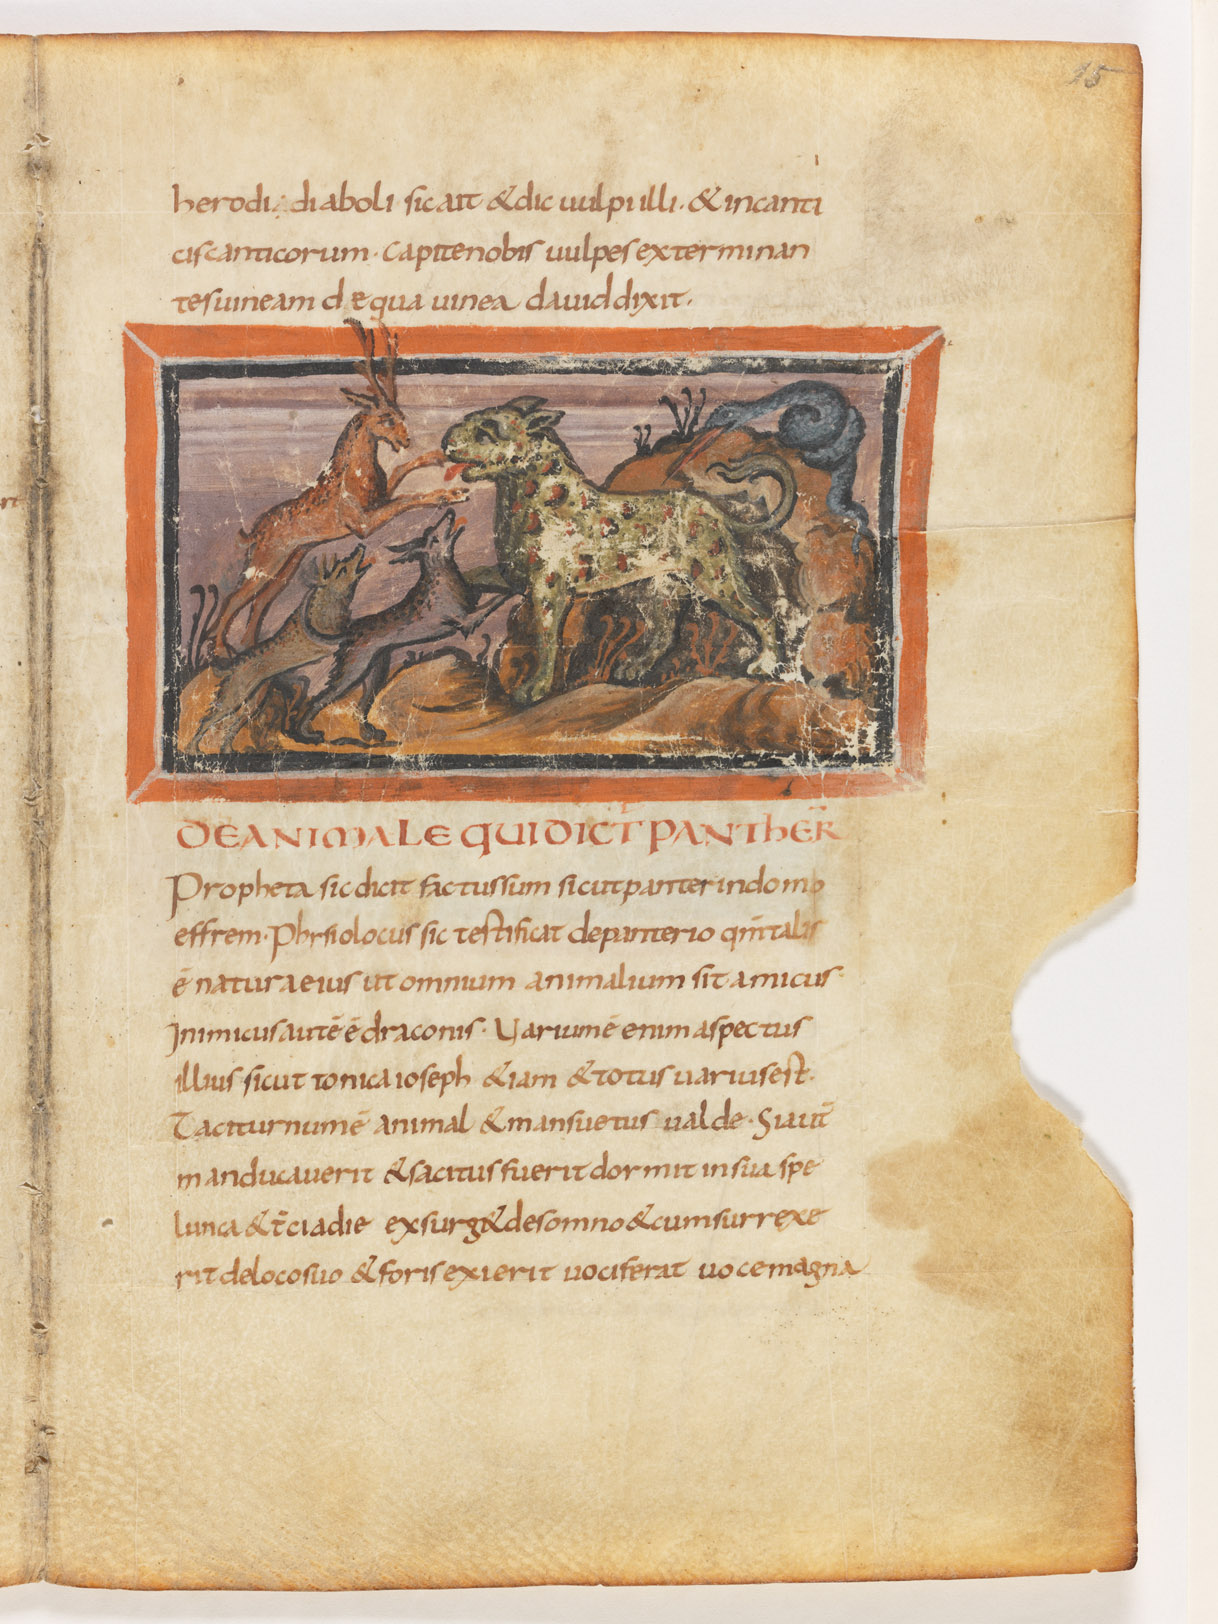 15
herodi diaboli sicait &dic uulpi illi · & incanti
ciscanticorum · capitenobis uulpes exterminan
tesuineam de qua uinea dauid dixit ·
DE ANIMALE QUI DICT̄ PANTHER̄
Propheta sic dicit factussum sicut panter in domo
effrem · Phisiolocus sic testificat de panterio qm̄ talis
ē natura eius ut omnium animalium sit amicus ·
Inimicus autē ē draconis · Uariumē enim aspectus
illius sicut tonica ioseph &iam &totus uariusest ·
Taciturnumē animal &mansuetus ualde · Siaut̄
manducauerit &sacitus fuerit dormit in sua spe
lunca &t̄cia die exsurg& de somno &cum surrexe
rit de loco suo &foris exierit uociferat uoce magna